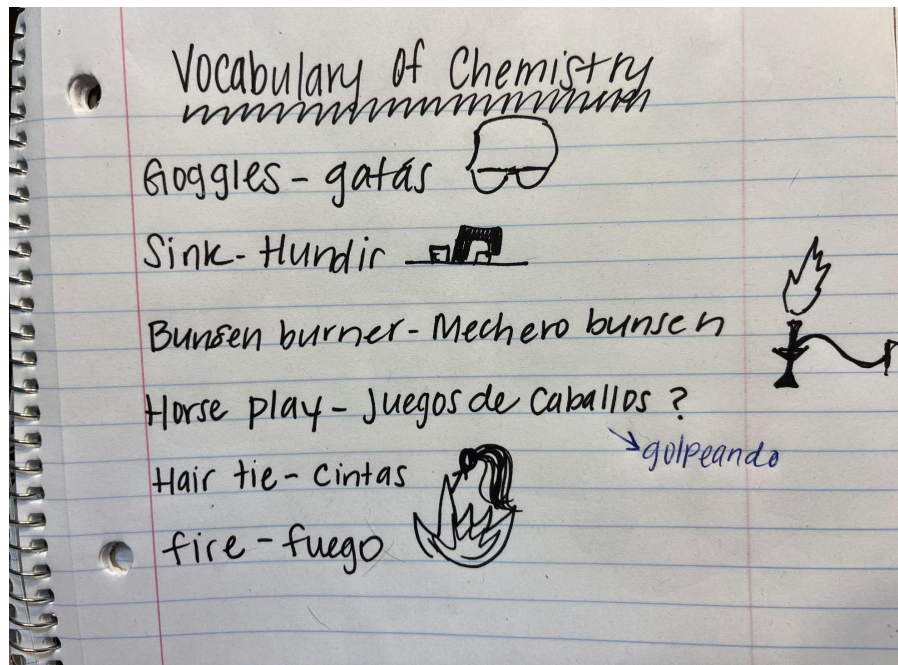 Vocabulary Of Chemistry
Goggles - gatás
Sink - Hundir
Bunsen burner - Mechero bunsen
Horse play - Juegos de Caballos ?
golpeando
Hair tie - Cintas
fire - fuego